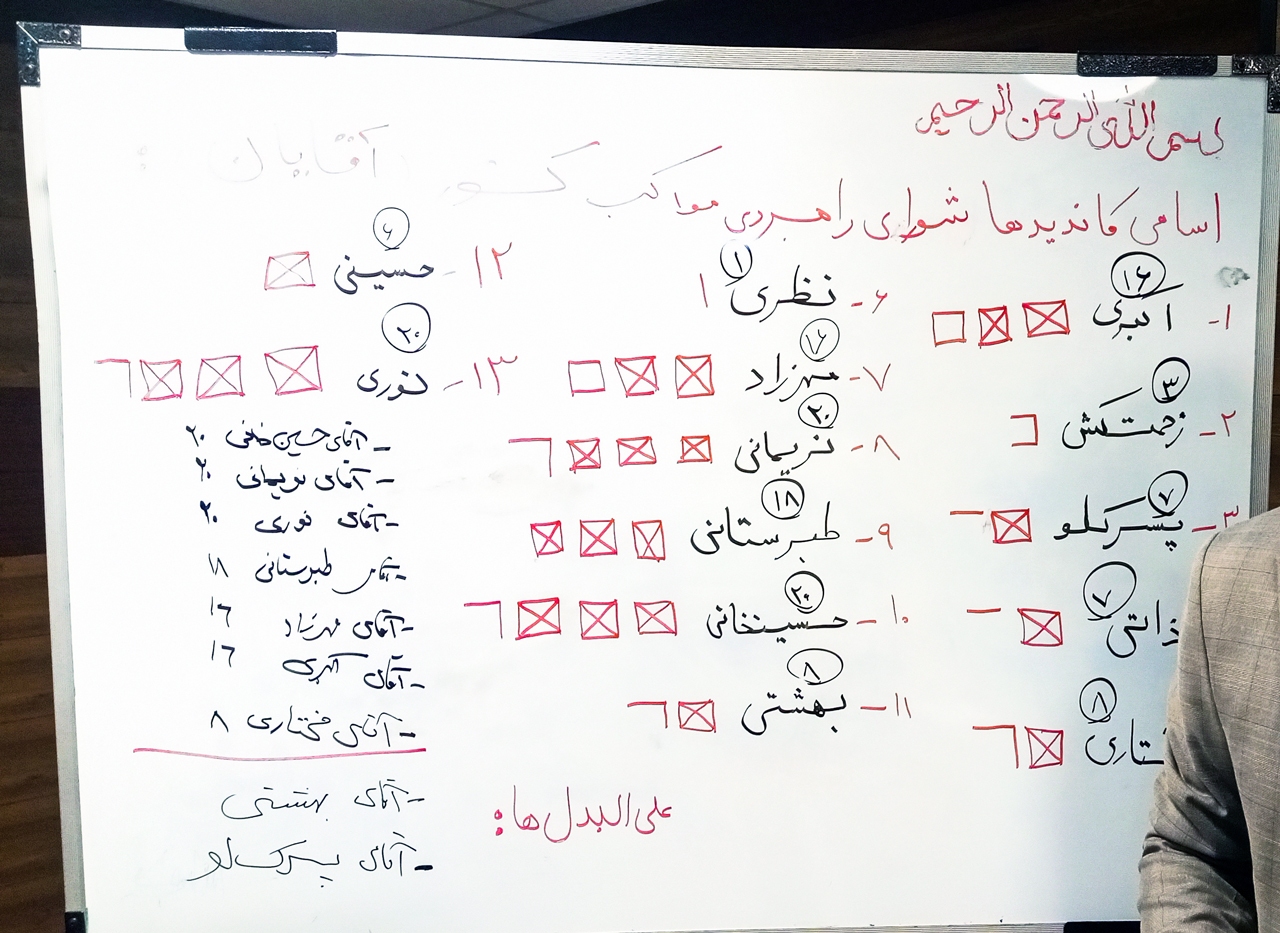 بسم الله الرحمن الرحیم
اسامی کاندیدها شورای راهبردی مواکب کشور آقایان :
۱- اکبری ۱۶
۲- زحمتکش ۳
۳- پسرکلو ۷
ذاتی ۷
تاری ۸
۶- نظری ۱
۷- مهرزاد ۱۶
۸- نریمانی ۲۰
۹- طبرستانی ۱۸
۱۰- حسینخانی ۲۰
۱۱- بهشتی ۸
۱۲- حسینی ۶
۱۳- نوری ۲۰
- آقای حسین خانی ۲۰
- آقای نریمانی ۲۰
- آقای نوری ۲۰
- آقای طبرستانی ۱۸
- آقای مهرزاد ۱۶
- آقای اکبری ۱۶
- آقای مختاری ۸
علی البدل ها:
- آقای بهشتی
- آقای پسرک لو